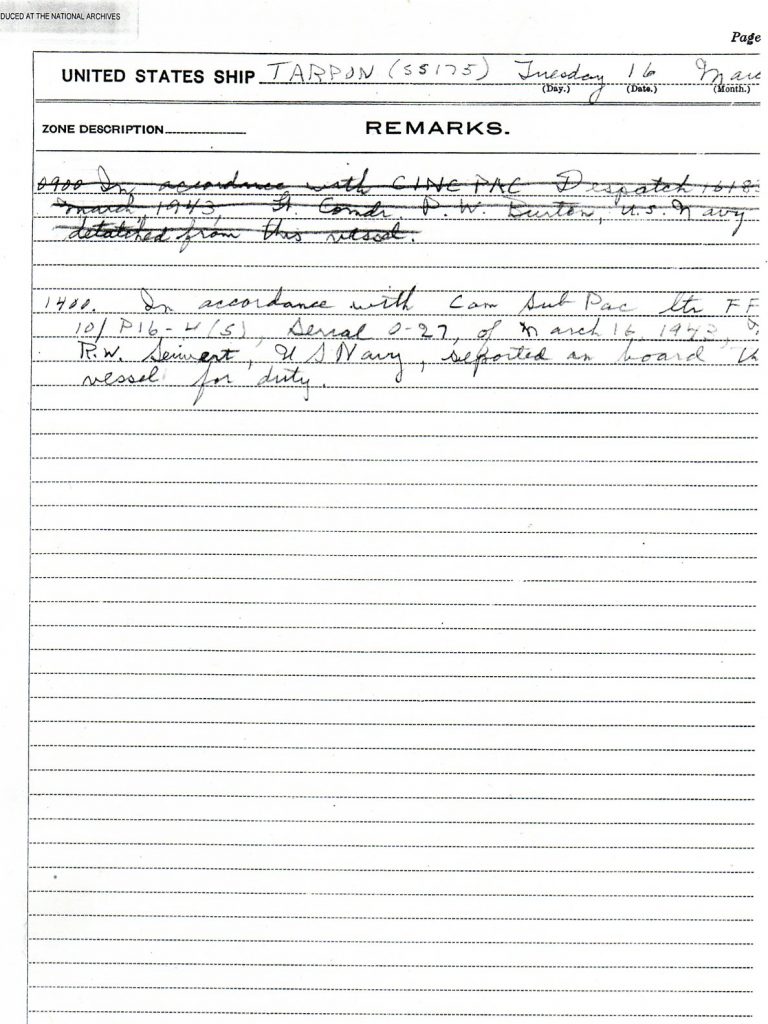 DUCED AT THE NATIONAL ARCHIVES
Page
UNITED STATES SHIP TARPON (SS175) Tuesday 16 Mar
(Day.) (Date.) (Month.)
ZONE DESCRIPTION REMARKS.
0900 In accordance with CINCPAC Despatch 1618
March 1943, Lt. Comdr. P. W. Burton, U.S. Navy
detatched from this vessel.
1400. In accordance with Com Sub Pac ltr FF
10/P16-4(S), Serial 0-27, of March 16, 1943,
R.W. Seiwert, U S Navy, reported on board th
vessel for duty.